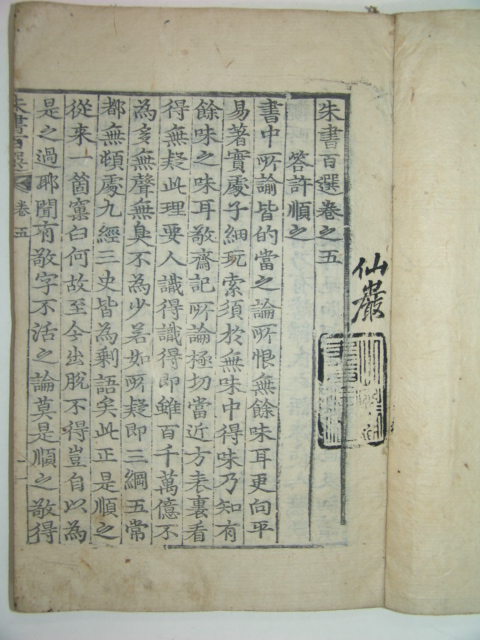 仙巖
朱書百選卷之五
答許順之
書中所論皆的當之論所恨無餘味耳更向平
易著實處子細玩索須於無味中得味乃知有
餘味之味耳敬齋記所論極切當近方表裏看
得無疑此理要人識得識得即雖百千萬億不
為多無聲無臭不為少若如所疑即三綱五常
都無頓處九經三史皆為剩語矣此正是順之
從来一箇窠臼何故至今出脫不得豈自以為
是之過耶聞有敬字不活之論莫是順之敬得
朱書百選
卷五